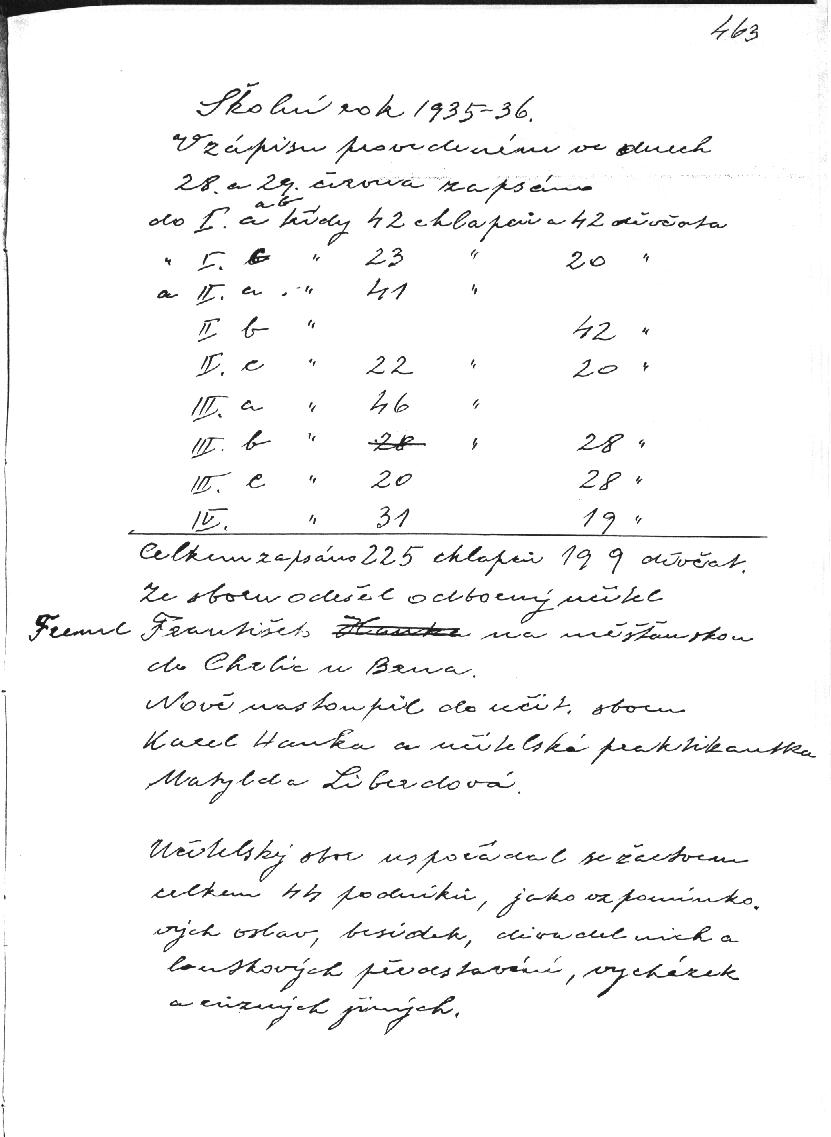 463
Školní rok 1935-36.
V zápisu provedeném ve dnech
28. a 29. června zapsáno
ab
do I. a třídy 42 chlapců a 42 děvčata
" I. c " 23 " 20 "
a II. a " 41 "
II b " 42 "
II. c " 22 " 20 "
III. a " 46 "
III. b " 28 " 28 "
III. c " 20 28 "
IV. " 31 19 "
Celkem zapsáno 225 chlapců 199 děvčat.
Ze sboru odešel odborný učitel
František Hanka na měšťanskou
do Chrlic u Brna.
Nově nastoupil do učit. sboru
Karel Hanka a učitelská praktikantka
Matylda Liberdová.
Učitelský sbor uspořádal se žactvem
celkem 44 podniků, jako vzpomínko-
vých oslav, besídek, divadelních a
loutkových představení, vycházek
a různých jiných.